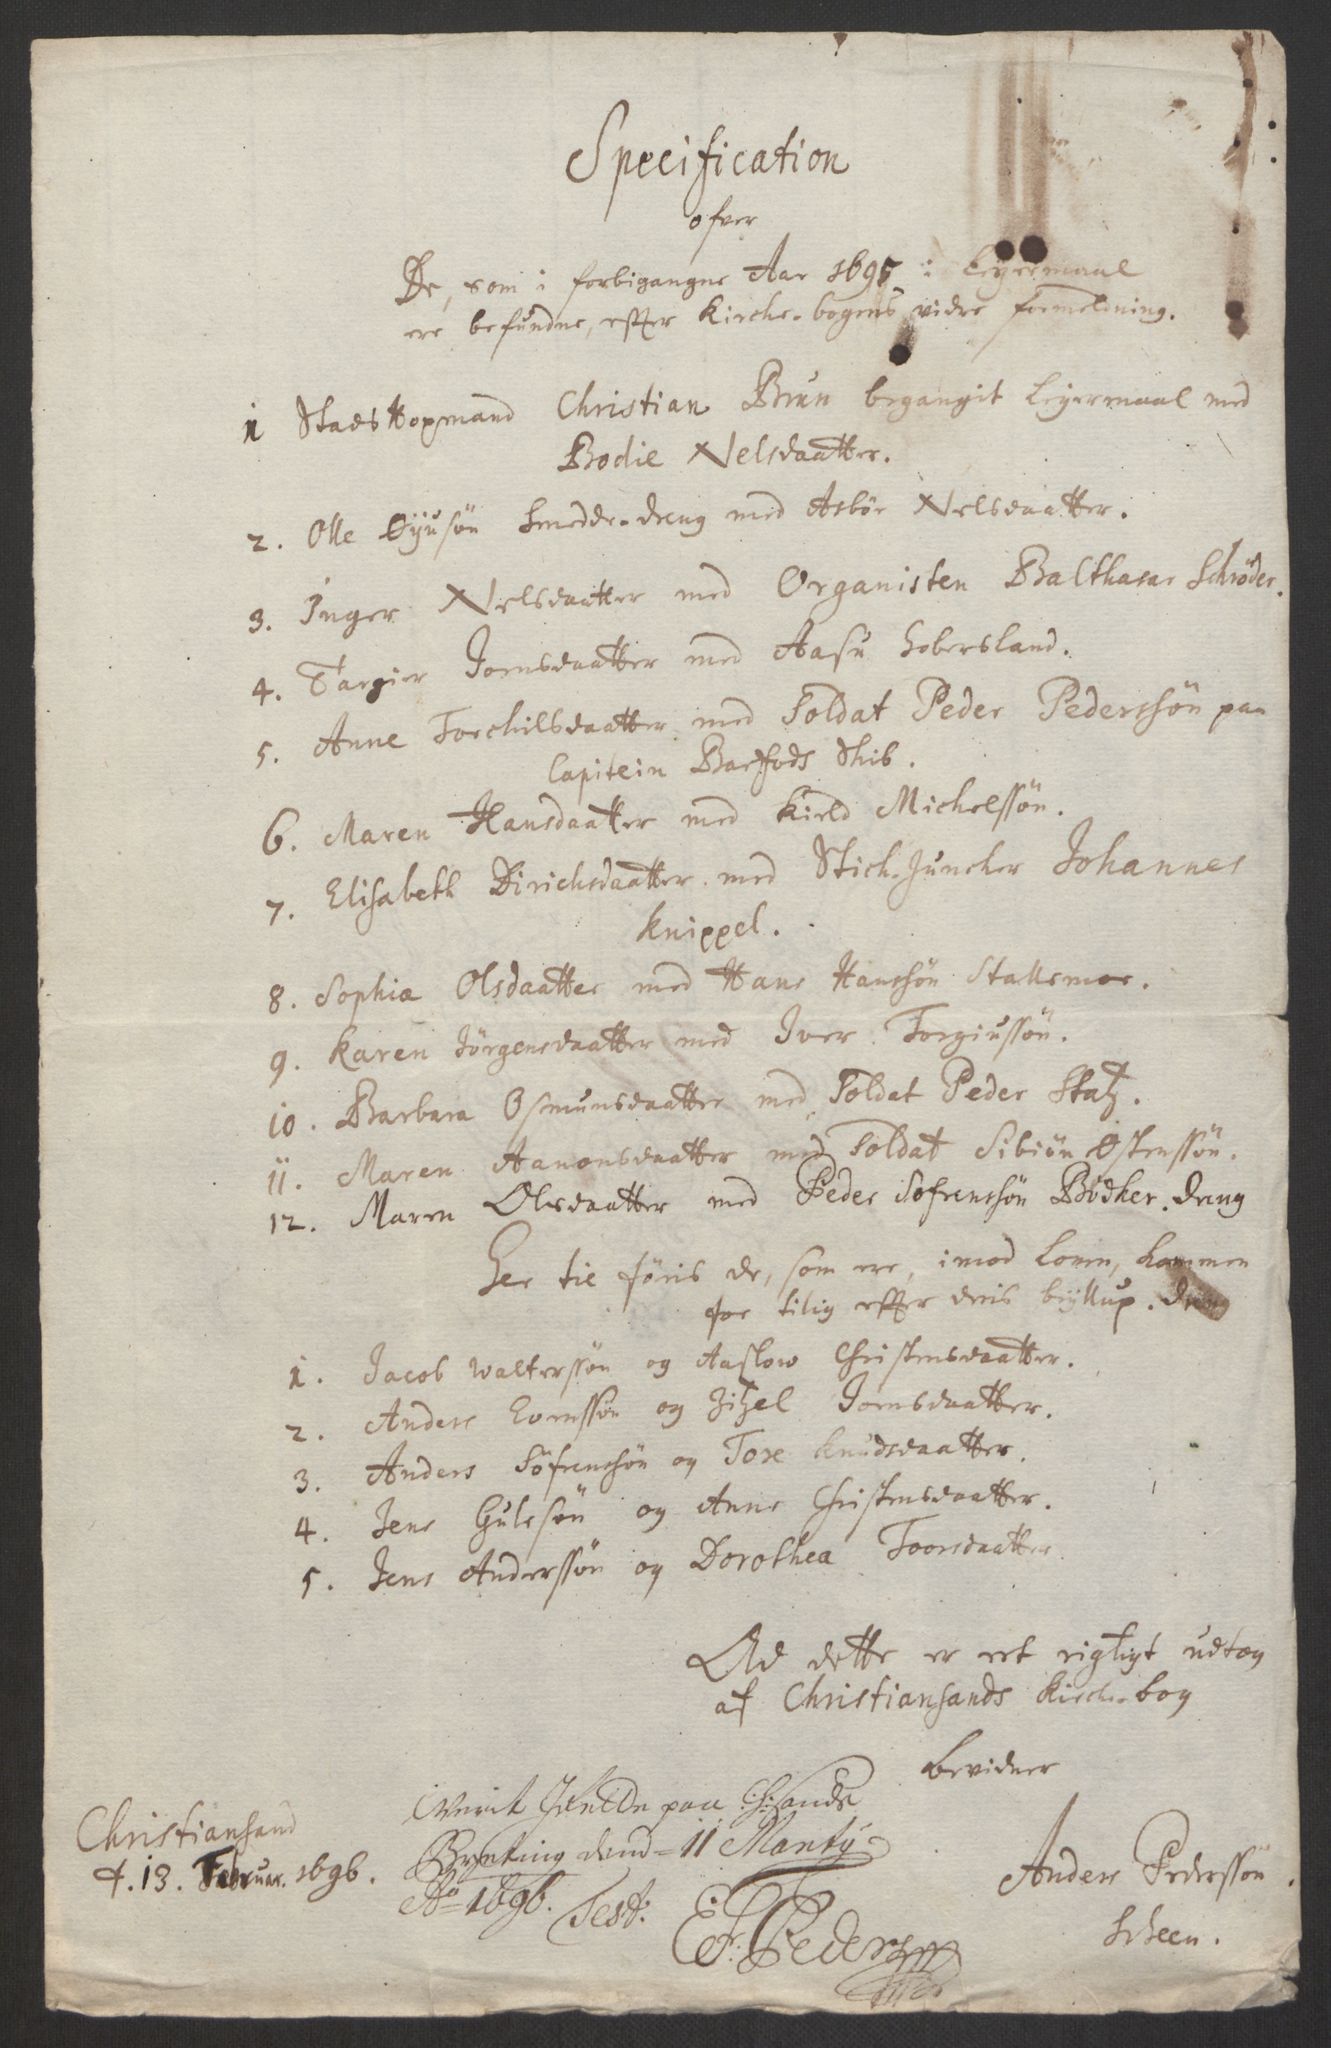 Specification
ofver
De, som i forbigangne Aar 1695 i Leyermaal
ere befundne, effter Kirche-bogens vidre formeldning.
1 StadsHopmand Christian Brun begangit Leyermaal med
Bodil Nelsdaatter.
2. Olle Øÿusøn Smedde-dreng med Asbor Nelsdaatter.
3. Inger Nelsdaatter med Organisten Balthasar Schrøder.
4. Targier Joensdaatter med Aasu Hobersland.
5. Anne Torchilsdaatter med Soldat Peder Pederssøn paa
Capitein Barfods Skib.
6. Maren Hansdaatter med Kield Michelssøn.
7. Elisabeth Dirichsdaatter med Stich-Juncher Johannes
Knippel.
8. Sophia Olsdaatter med Hans Hanssøn Stallemoe.
9. Karen Jørgensdaatter med Iver Torgiussøn.
10. Barbara Osmunsdaatter med Soldat Peder Skatz.
11. Maren Aanonsdaatter med Soldat Sibiøn Østenssøn.
12. Maren Olsdaatter med Peder Sofrenssøn Bødker-dreng
Her til føris de, som ere, imod Loven, kommen
for tilig effter deris bryllup.
1. Jacob Walterssøn og Aaslow Christensdaatter.
2. Anders Evenssøn og Zitzel Joensdaatter.
3. Anders Søfrenssøn og Tore Knudsdaatter.
4. Jens Gulesøn og Anne Christensdaatter.
5. Jens Anderssøn og Dorothea Toersdaatter
Ad dette er ret rigtigt udtog
af Christiansands Kirche-bog
bevidner
Christiansand
d. 13. Februar. 1696.
Verit Jrette paa C:Sands
Byeting dend 11 Martÿ
Ao 1696. Test.
E: Peders
Anders Pederssøn
Scheen.